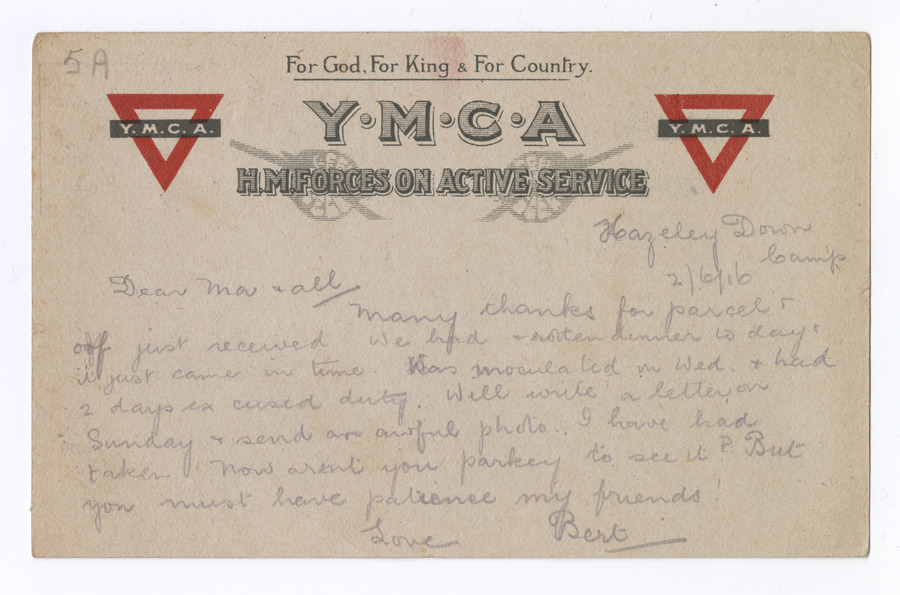 5A
For God, For King & For Country.
Y·M·C·A
Y.M.C.A.
Y.M.C.A.
H.M. FORCES ON ACTIVE SERVICE
Hazeley Down
Camp
2/6/16
Dear Ma & all
Many thanks for parcel &
just received We had rotten dinner to day &
it just came in time. Was inoculated on Wed. & had
2 days excused duty. Will write a letter on
Sunday & send an awful photo. I have had
taken. Now arent you parkey to see it? But
you must have patience my friends!
Love Bert